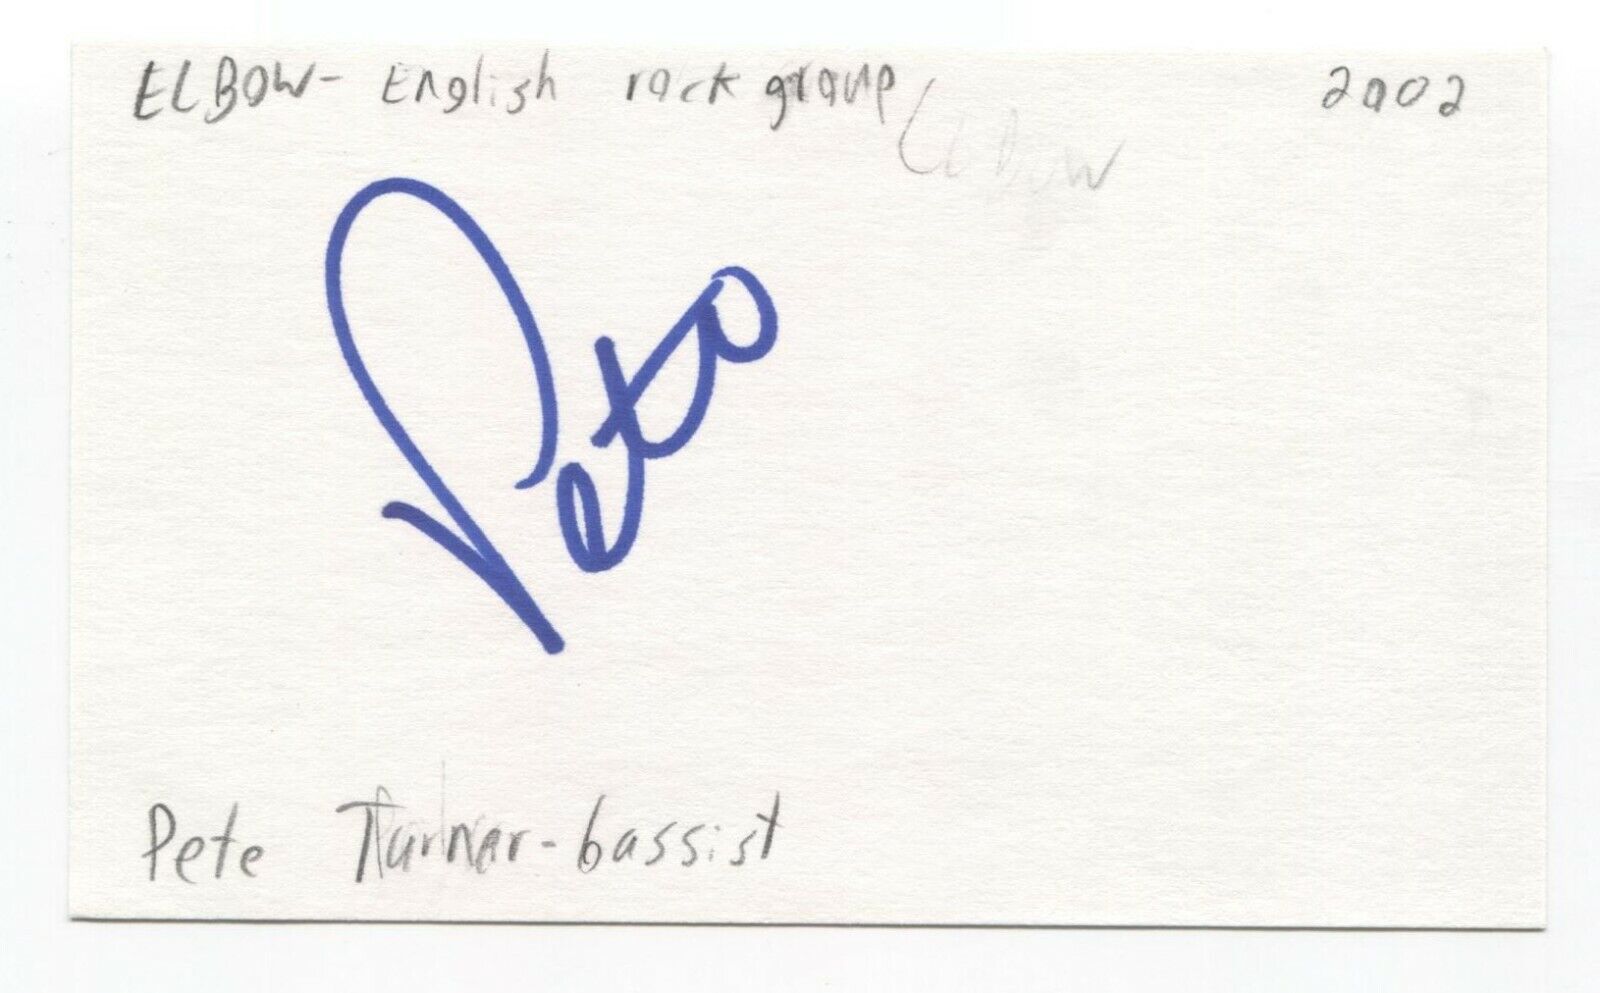 ELBOW- English rock group
ELBOW
2002
Pete
Pete Turner-bassist